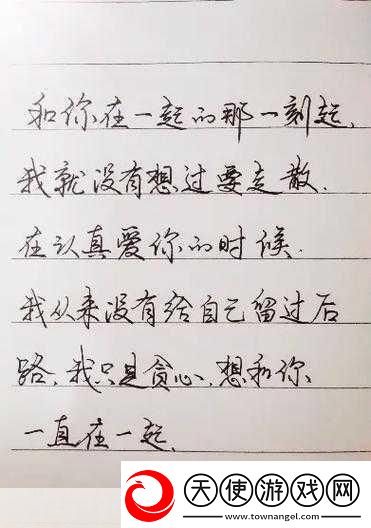 和你在一起的那一刻起.
我就没有想过要走散.
在认真爱你的时候.
我从来没有给自己留过后
路.我只是贪心.想和你
一直在一起.
天使游戏网
www.townangel.com